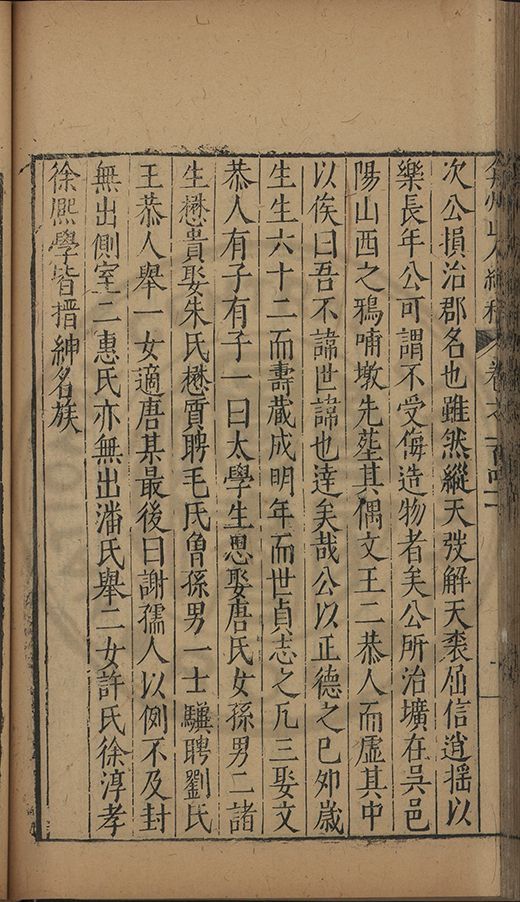 弇州山人續稿 卷之一百四十
次公損治郡名也雖然縱天弢解天袠屈信逍搖以
樂長年公可謂不受侮造物者矣公所治壙在吳邑
陽山西之鴉哺墩先塟其偶文王二恭人而虛其中
以俟曰吾不諱世諱也達矣哉公以正德之巳夘歲
生生六十二而壽藏成明年而世貞志之凢三娶文
恭人有子有子一曰太學生思娶唐氏女孫男二諸
生懋貴娶朱氏懋貭聘毛氏曽孫男一士驥聘劉氏
王恭人舉一女適唐某最後曰謝孺人以例不及封
無出側室二惠氏亦無出潘氏舉二女許氏徐淳孝
徐熈學皆搢紳名族